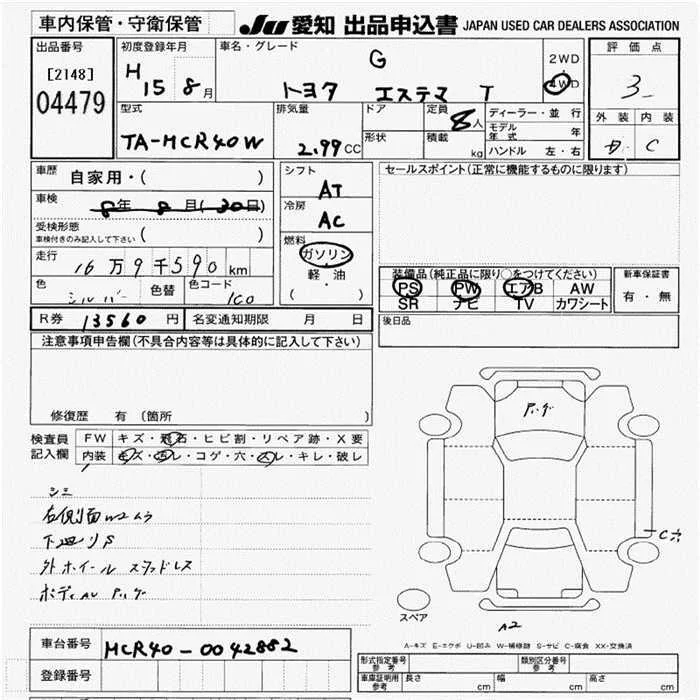 車内保管・守衛保管
JU 愛知 出品申込書 JAPAN USED CAR DEALERS ASSOCIATION
出品番号
[2148]
04479
初度登録年月
H 15 8月
車名・グレード
G
トヨタ エステマ T
2WD
4WD
評価点
3
外装 内装
C
型式
TA-MCR40W
排気量
2.99CC
ドア
形状
定員
8人
積載
kg
ディーラー・並行
モデル年式 年
ハンドル 左・右
車歴
自家用・( )
車検
8年 8月(30日)
受検形態
車検付きのみ記入して下さい ( )
走行
16万9千590km
色
シルバー
色替
色コード
1C0
シフト
AT
冷房
AC
燃料
ガソリン
軽・油
( )
セールスポイント(正常に機能するものに限ります)
装備品(純正品に限り○をつけてください)
PS PW エアB AW
SR ナビ TV カワシート
新車保証書
有・無
R券 13560円
名変通知期限 月 日
後日品
注意事項申告欄(不具合内容等は具体的に記入して下さい)
修復歴 有 (箇所 )
検査員
記入欄
FW キズ・飛石・ヒビ割・リペア跡・X要
内装 キズ・汚レ・コゲ・穴・スレ・キレ・破レ
シミ
右側面W2ムラ
下廻りS
外ホイール スタッドレス
スペア
A2
A-キズ E-エクボ U-凹み W-補修跡 S-サビ C-腐食 XX-交換済
車台番号
MCR40-0042882
登録番号
形式指定番号 参考
類別区分番号 参考
車庫証明用 参考
長さ cm 幅 cm 高さ cm